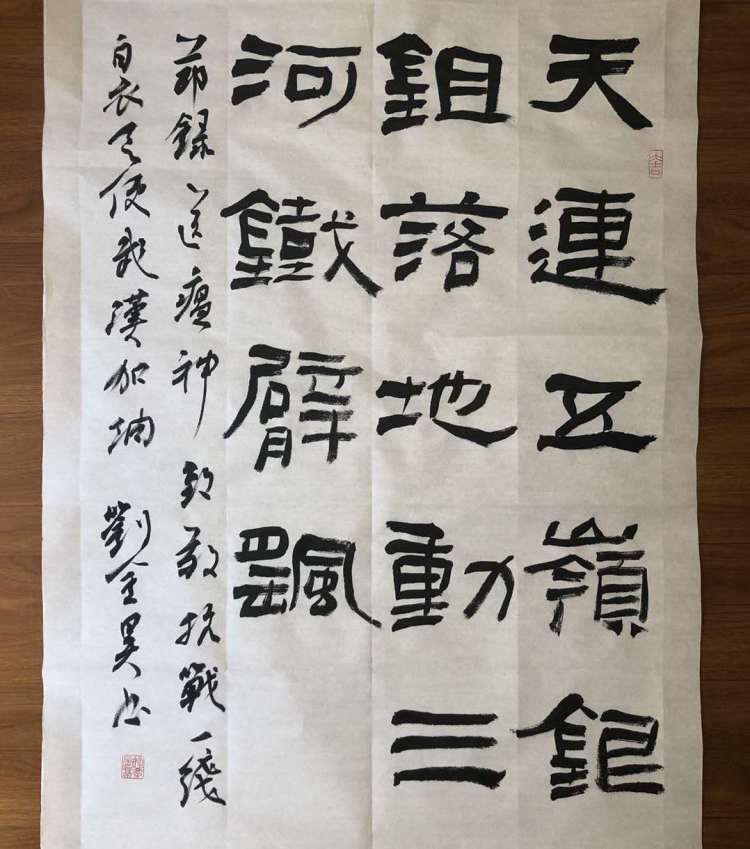 天連五嶺銀
鉏落地動三
河鐵臂颻
节錄送瘟神致敬抗戰一綫
白衣天使武漢加油 劉金昊书